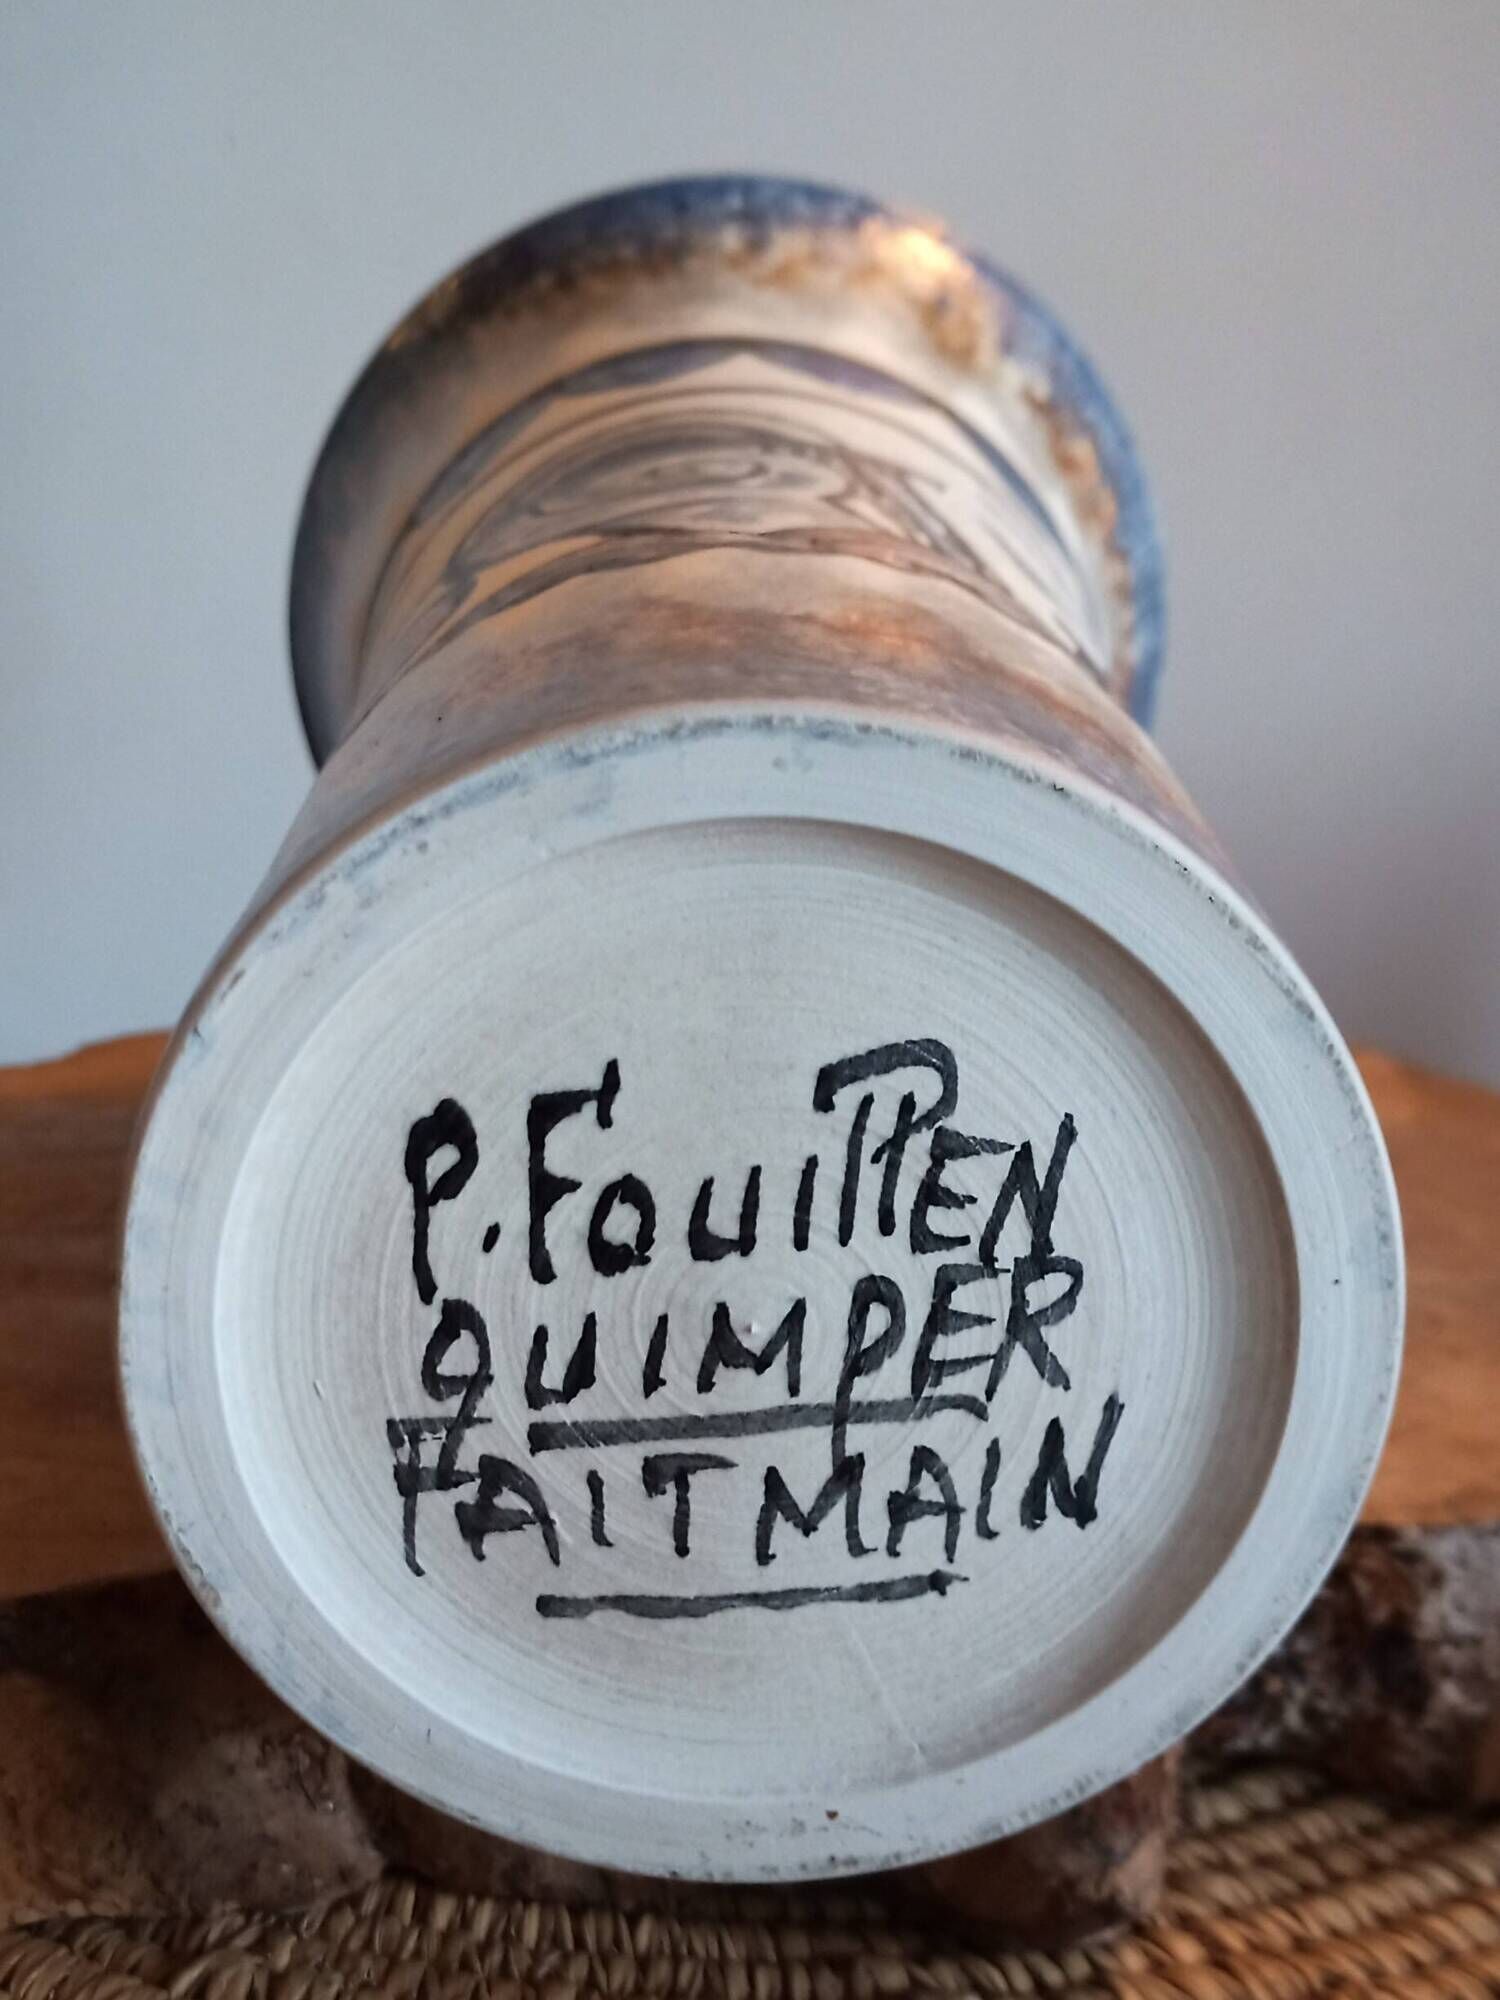 P. FouillEN
QUIMPER
FAIT MAIN